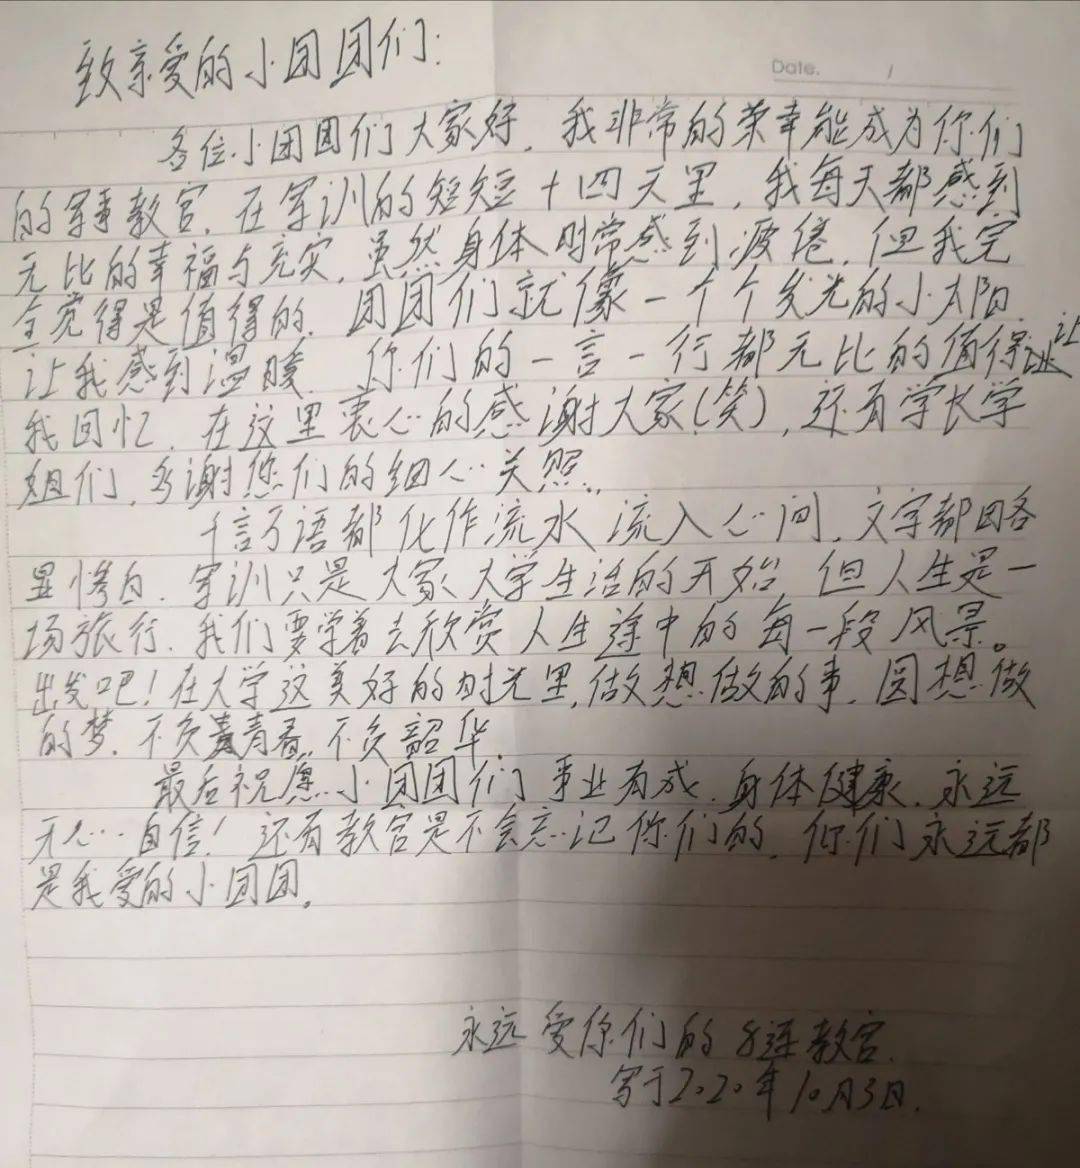 致亲爱的小团团们:
Date. /
各位小团团们大家好,我非常的荣幸能成为你们
的军事教官,在军训的短短十四天里,我每天都感到
无比的幸福与充实,虽然身体时常感到疲倦,但我完
全觉得是值得的.团团们就像一个个发光的小太阳.
让我感到温暖.你们的一言一行都无比的值得让
我回忆,在这里衷心的感谢大家(笑),还有学长学
姐们,多谢您们的细心关照.
千言万语都化作流水流入心间,文字都略
显惨白.军训只是大家大学生活的开始.但人生是一
场旅行.我们要学着去欣赏人生途中的每一段风景。
出发吧!在大学这美好的时光里,做想做的事,圆想做
的梦.不负青春.不负韶华.
最后祝愿小团团们事业有成.身体健康.永远
开心自信!还有教官是不会忘记你们的.你们永远都
是我爱的小团团。
永远爱你们的8连教官.
写于2020年10月3日.